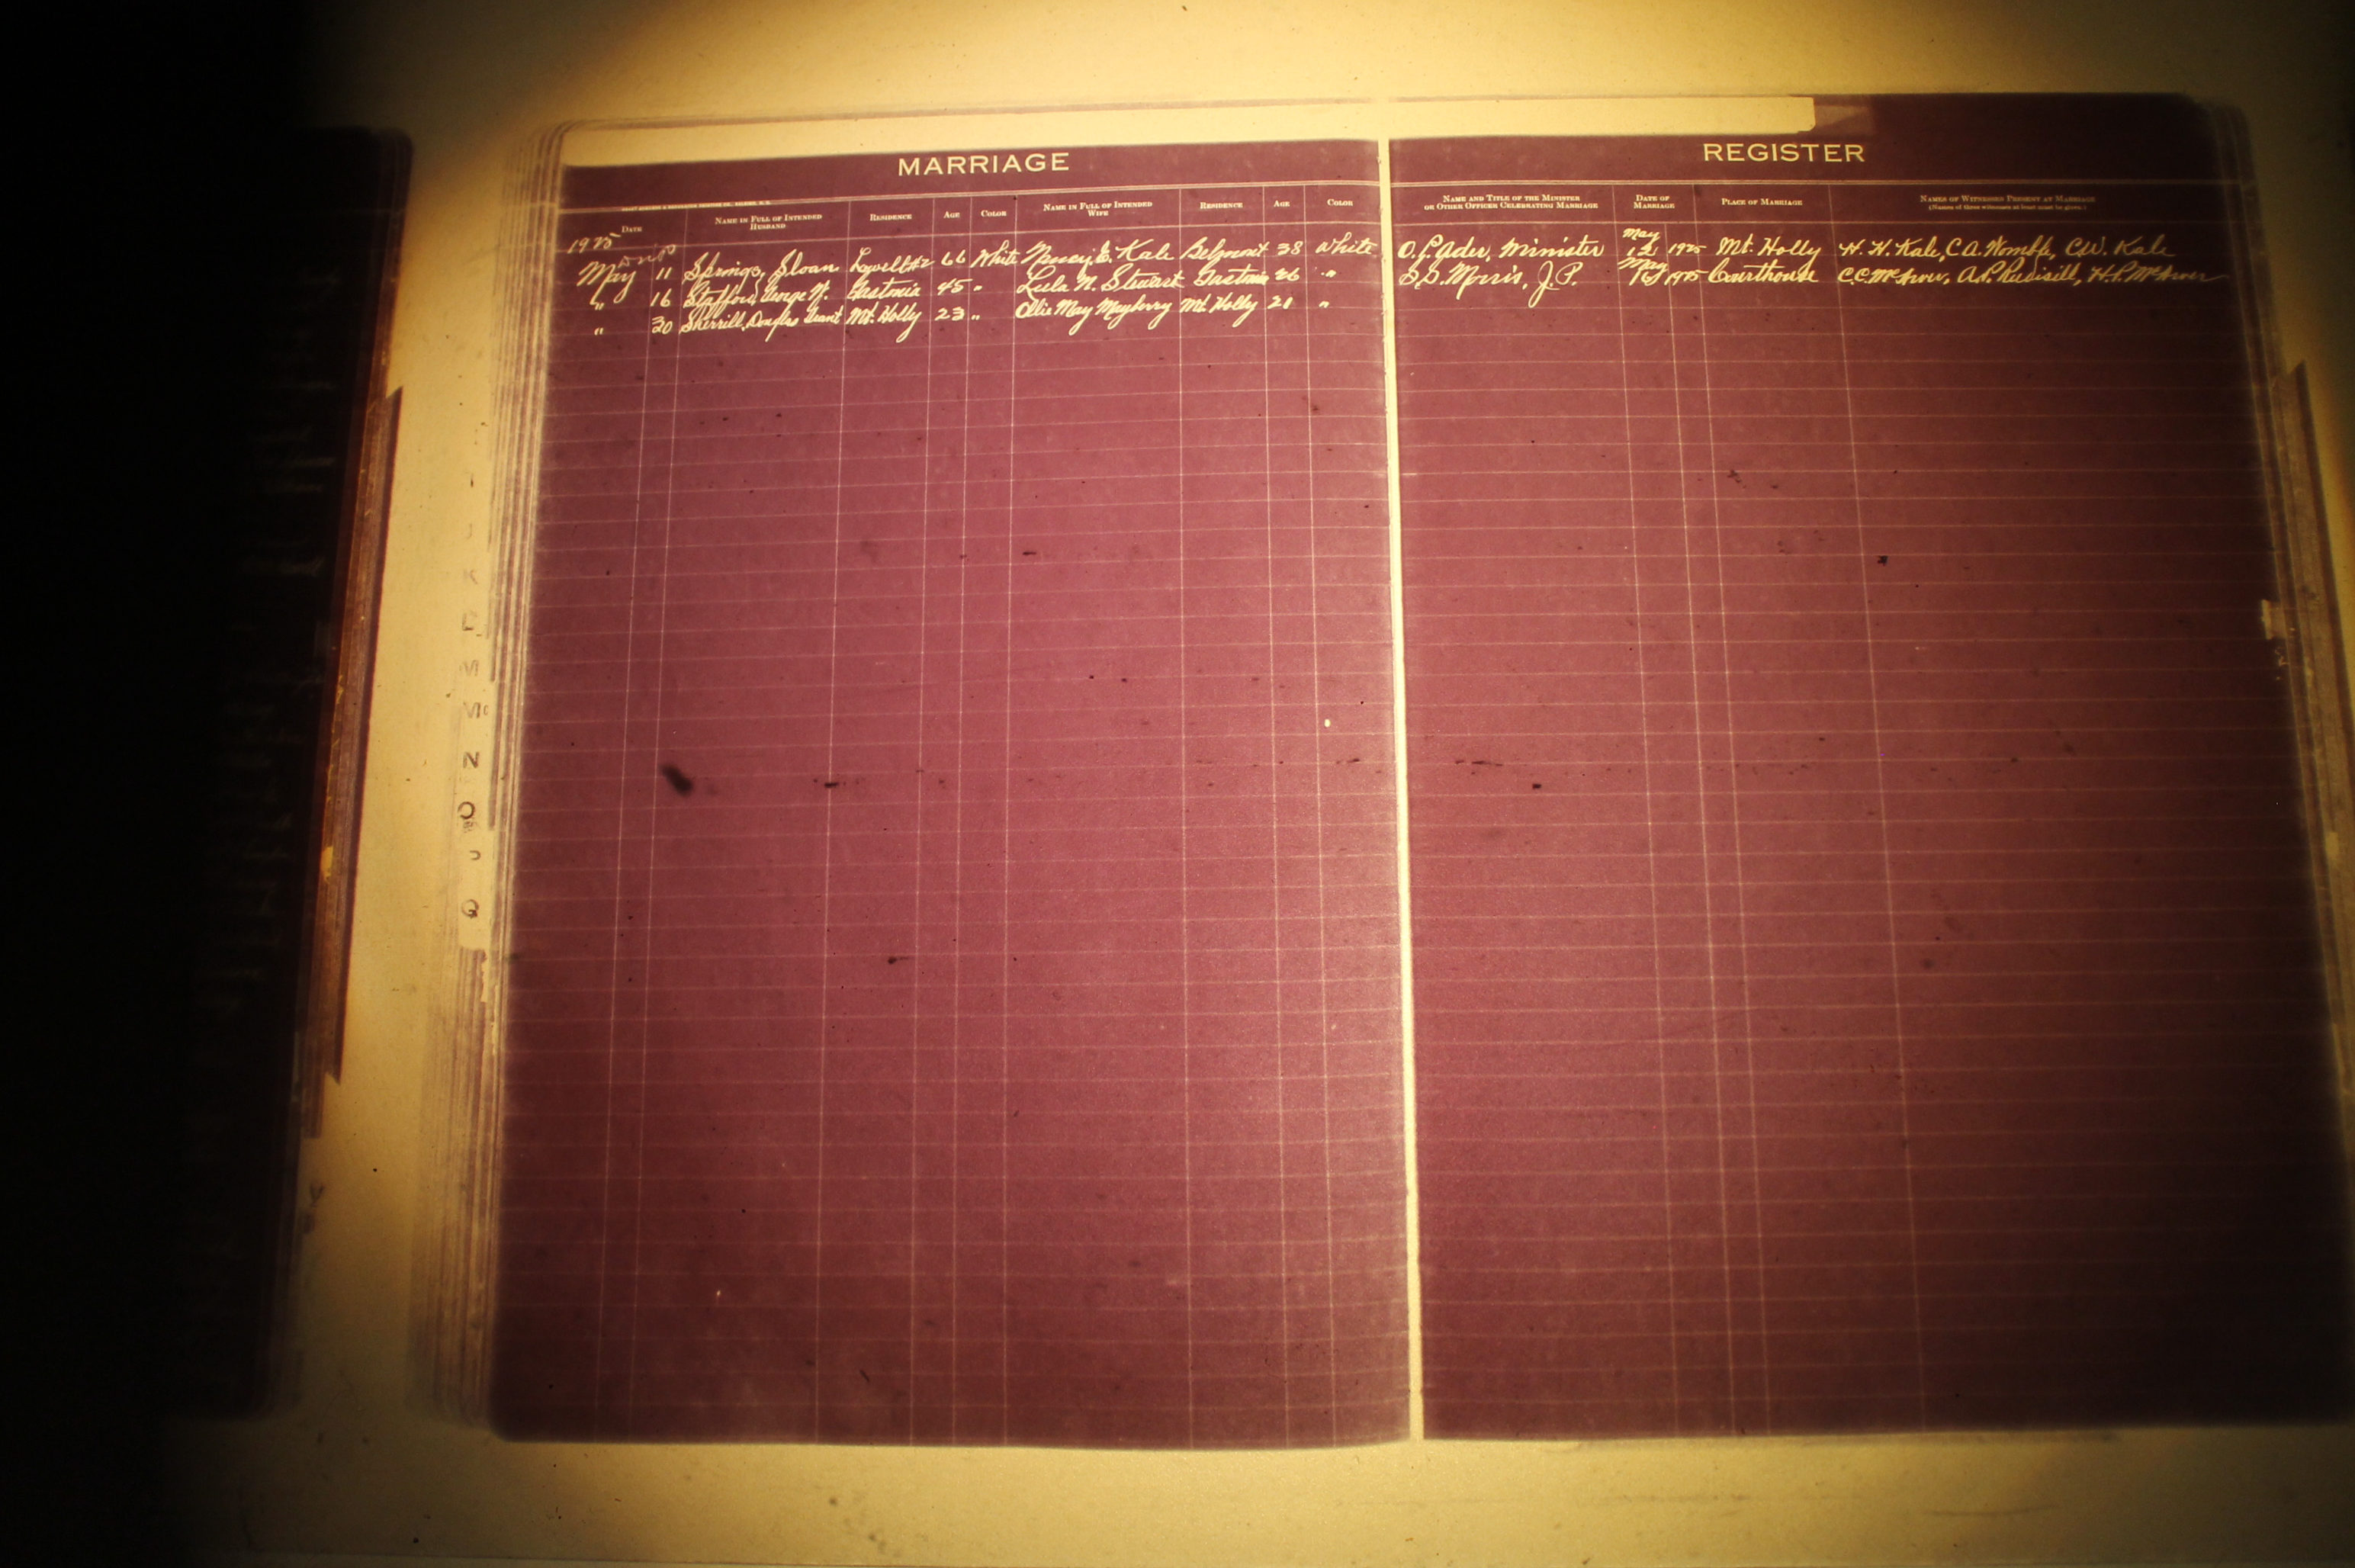 MARRIAGE REGISTER
DATE NAME IN FULL OF INTENDED HUSBAND RESIDENCE AGE COLOR NAME IN FULL OF INTENDED WIFE RESIDENCE AGE COLOR NAME AND TITLE OF THE MINISTER OR OTHER OFFICER CELEBRATING MARRIAGE DATE OF MARRIAGE PLACE OF MARRIAGE NAMES OF WITNESSES PRESENT AT MARRIAGE (Names of three witnesses at least must be given.)
1925
May 11 Springs, Sloan Lowell #2 66 White Nancy E. Kale Belmont 38 White Minister May 12 1925 Mt. Holly H. H. Kale, C.A. Womble, C.W. Kale
" 16 Stafford, George W. Gastonia 45 " Lula N. Stewart Gastonia 26 " S.S. Morris, J.P. May 16 1925 Courthouse C.C. McAver, A.P. Rudisill, H.P. McAver
" 30 Sherrill, Douglas Grant Mt. Holly 23 " Ollie May Mayberry Mt. Holly 21 "
K
L
M
Mc
N
O
P
Q